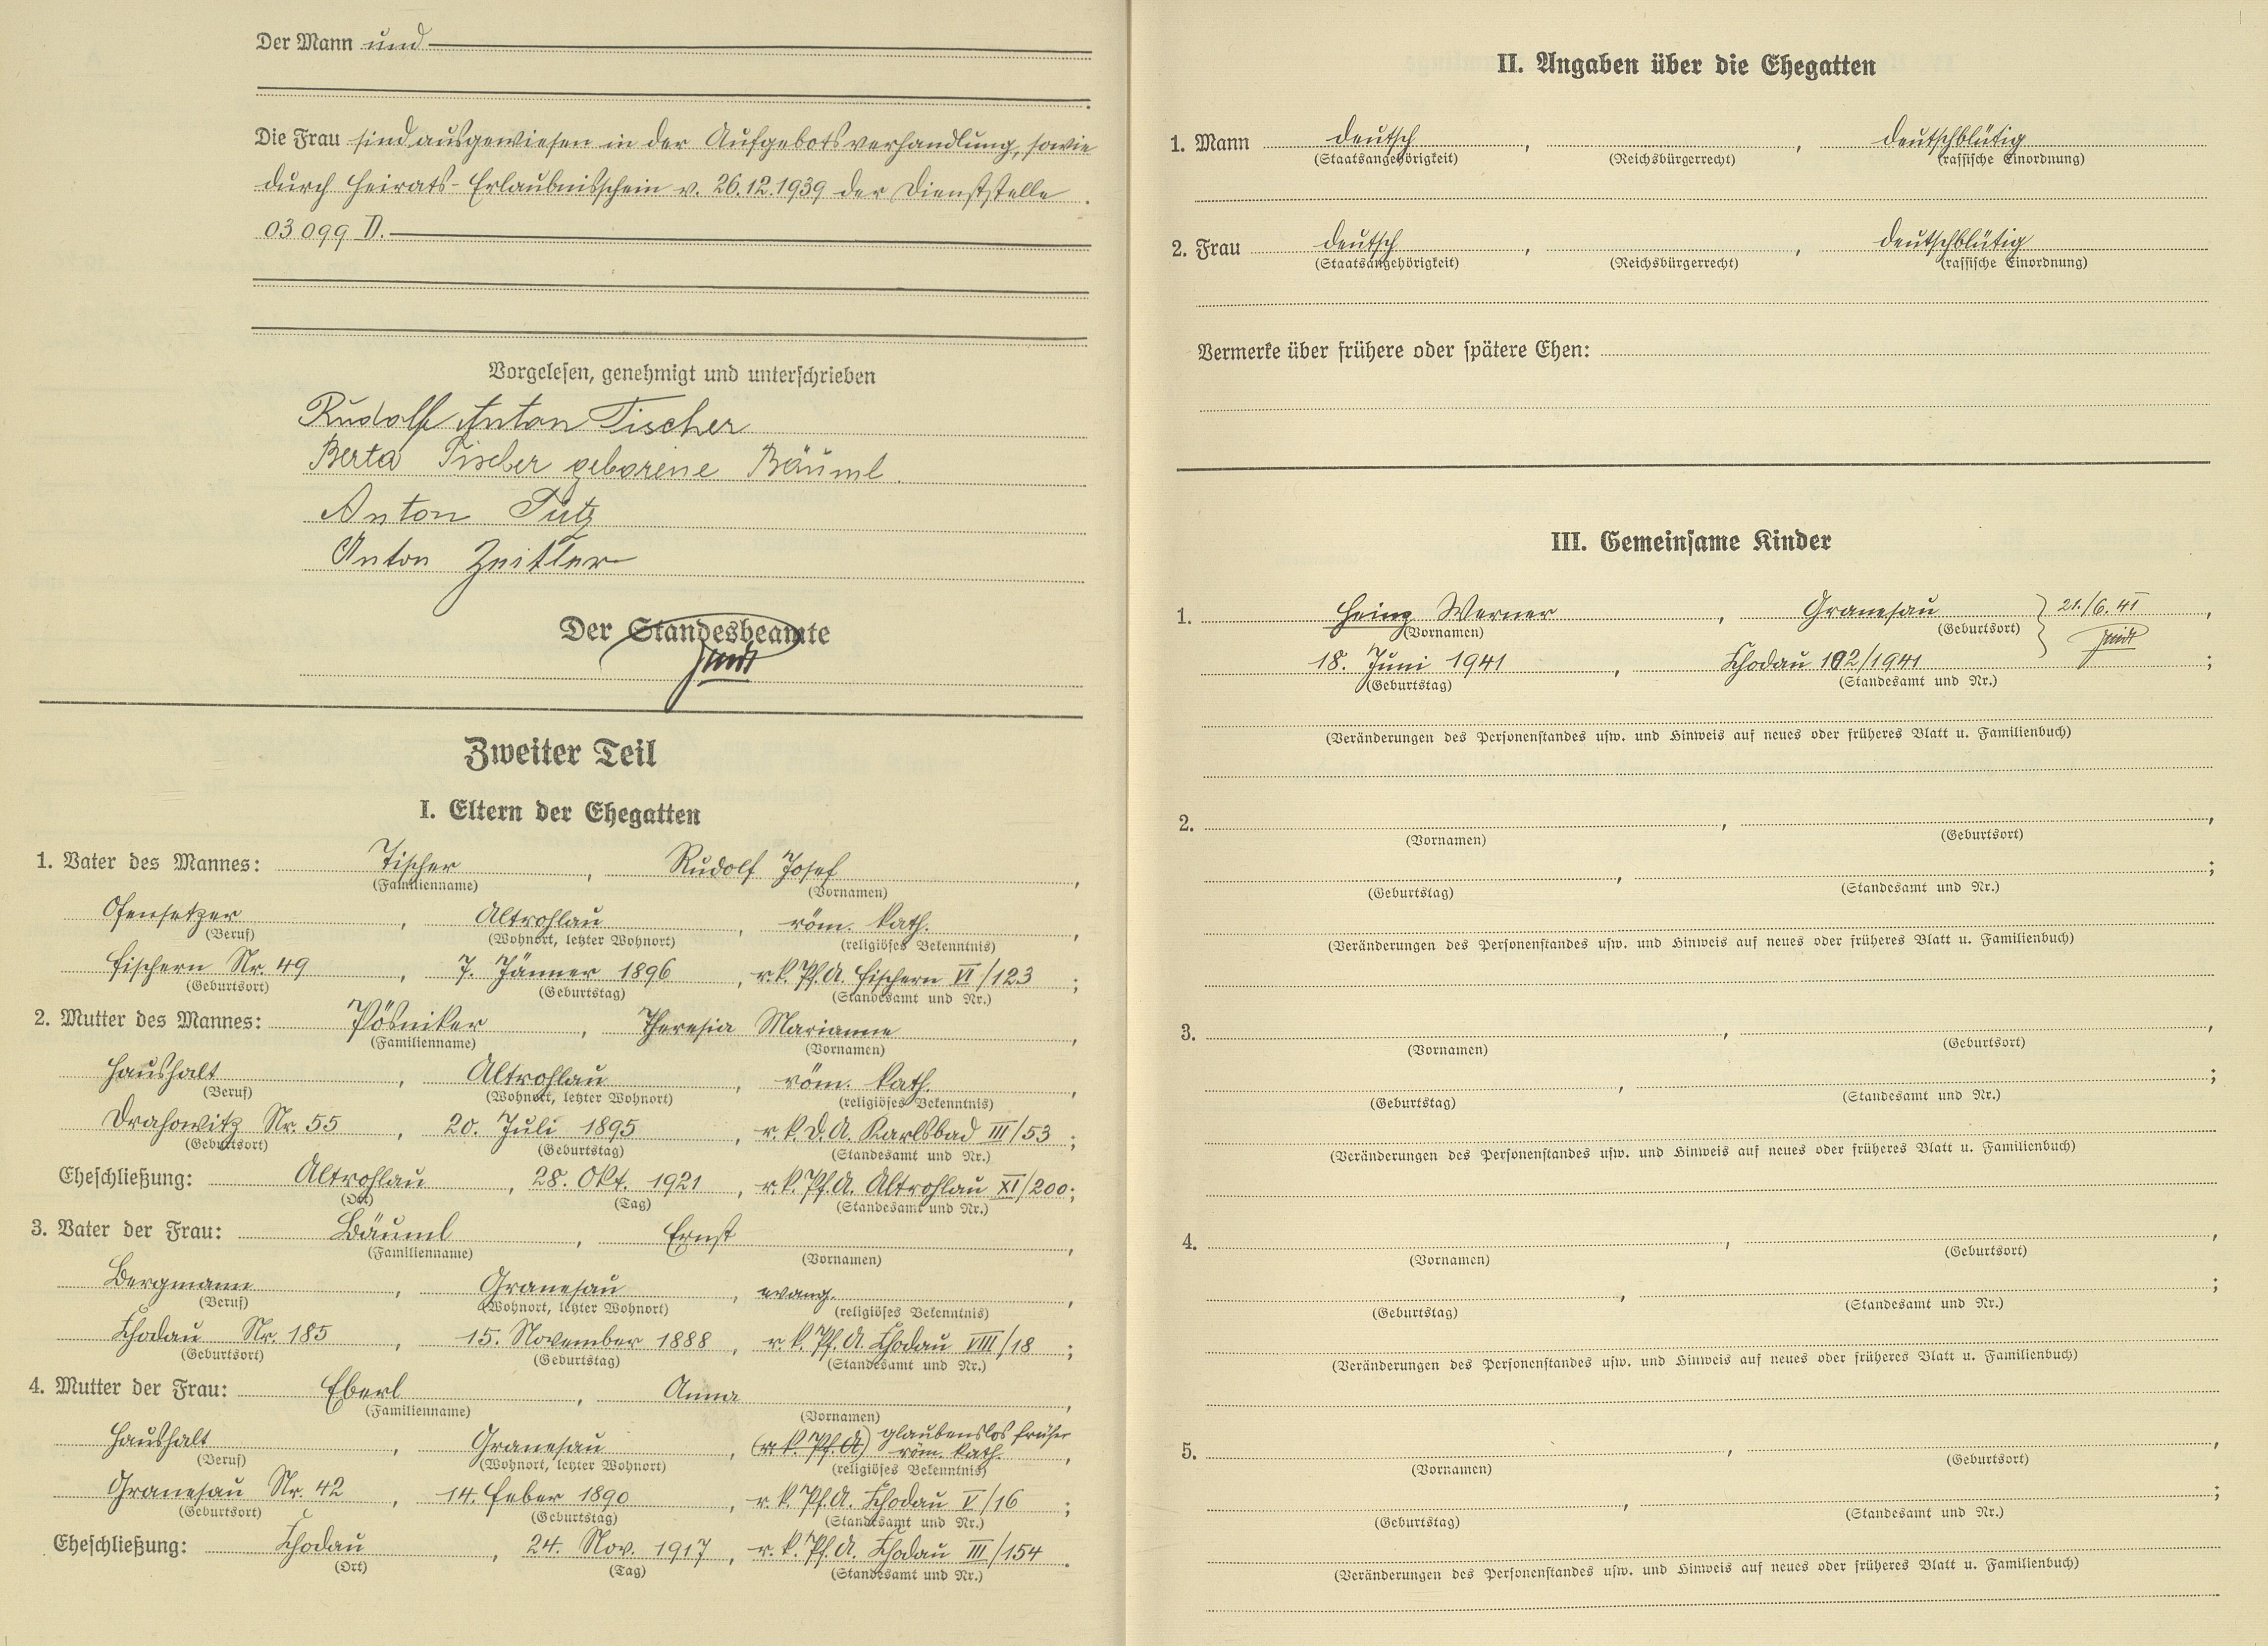 Der Mann und
Die Frau sind ausgewiesen in der Aufgebotsverhandlung, sowie
durch Heirats-Erlaubnisschein v. 26.12.1939 der Dienststelle
03099 D.
Vorgelesen, genehmigt und unterschrieben
Rudolf Anton Tischer
Berta Tischer geborene Bäuml.
Anton
Anton Zeitler
Der Standesbeamte
Zweiter Teil
I. Eltern der Ehegatten
1. Vater des Mannes: Tischer, Rudolf Josef,
(Familienname) (Vornamen)
Ofensetzer, Altrohlau, röm. kath.,
(Beruf) (Wohnort, letzter Wohnort) (religiöses Bekenntnis)
Fischern Nr. 49, 7. Jänner 1896, r.k. Pf.A. Fischern VI/123;
(Geburtsort) (Geburtstag) (Standesamt und Nr.)
2. Mutter des Mannes: Pösniker, Theresia Marianne,
(Familienname) (Vornamen)
Haushalt, Altrohlau, röm. kath.,
(Beruf) (Wohnort, letzter Wohnort) (religiöses Bekenntnis)
Drahowitz Nr. 55, 20. Juli 1895, r.k. D.A. Karlsbad III/53;
(Geburtsort) (Geburtstag) (Standesamt und Nr.)
Eheschließung: Altrohlau, 28. Okt. 1921, r.k. Pf.A. Altrohlau XI/200;
(Ort) (Tag) (Standesamt und Nr.)
3. Vater der Frau: Bäuml, Ernst,
(Familienname) (Vornamen)
Bergmann, Granesau, evang.,
(Beruf) (Wohnort, letzter Wohnort) (religiöses Bekenntnis)
Chodau Nr. 185, 15. November 1888, r.k. Pf.A. Chodau VIII/18;
(Geburtsort) (Geburtstag) (Standesamt und Nr.)
4. Mutter der Frau: Eberl, Anna,
(Familienname) (Vornamen)
glaubenslos früher
Haushalt, Granesau, (r.k. Pf.A) röm. kath.,
(Beruf) (Wohnort, letzter Wohnort) (religiöses Bekenntnis)
Granesau Nr. 42, 14. Feber 1890, r.k. Pf.A. Chodau V/16;
(Geburtsort) (Geburtstag) (Standesamt und Nr.)
Eheschließung: Chodau, 24. Nov. 1917, r.k. Pf.A. Chodau III/154.
(Ort) (Tag) (Standesamt und Nr.)
II. Angaben über die Ehegatten
1. Mann deutsch, , deutschblütig
(Staatsangehörigkeit) (Reichsbürgerrecht) (rassische Einordnung)
2. Frau deutsch, , deutschblütig
(Staatsangehörigkeit) (Reichsbürgerrecht) (rassische Einordnung)
Vermerke über frühere oder spätere Ehen:
III. Gemeinsame Kinder
1. Heinz Werner, Granesau } 21./6.41,
(Vornamen) (Geburtsort)
18. Juni 1941, Chodau 102/1941;
(Geburtstag) (Standesamt und Nr.)
(Veränderungen des Personenstandes usw. und Hinweis auf neues oder früheres Blatt u. Familienbuch)
2. , ,
(Vornamen) (Geburtsort)
, ;
(Geburtstag) (Standesamt und Nr.)
(Veränderungen des Personenstandes usw. und Hinweis auf neues oder früheres Blatt u. Familienbuch)
3. , ,
(Vornamen) (Geburtsort)
, ;
(Geburtstag) (Standesamt und Nr.)
(Veränderungen des Personenstandes usw. und Hinweis auf neues oder früheres Blatt u. Familienbuch)
4. , ,
(Vornamen) (Geburtsort)
, ;
(Geburtstag) (Standesamt und Nr.)
(Veränderungen des Personenstandes usw. und Hinweis auf neues oder früheres Blatt u. Familienbuch)
5. , ,
(Vornamen) (Geburtsort)
, ;
(Geburtstag) (Standesamt und Nr.)
(Veränderungen des Personenstandes usw. und Hinweis auf neues oder früheres Blatt u. Familienbuch)